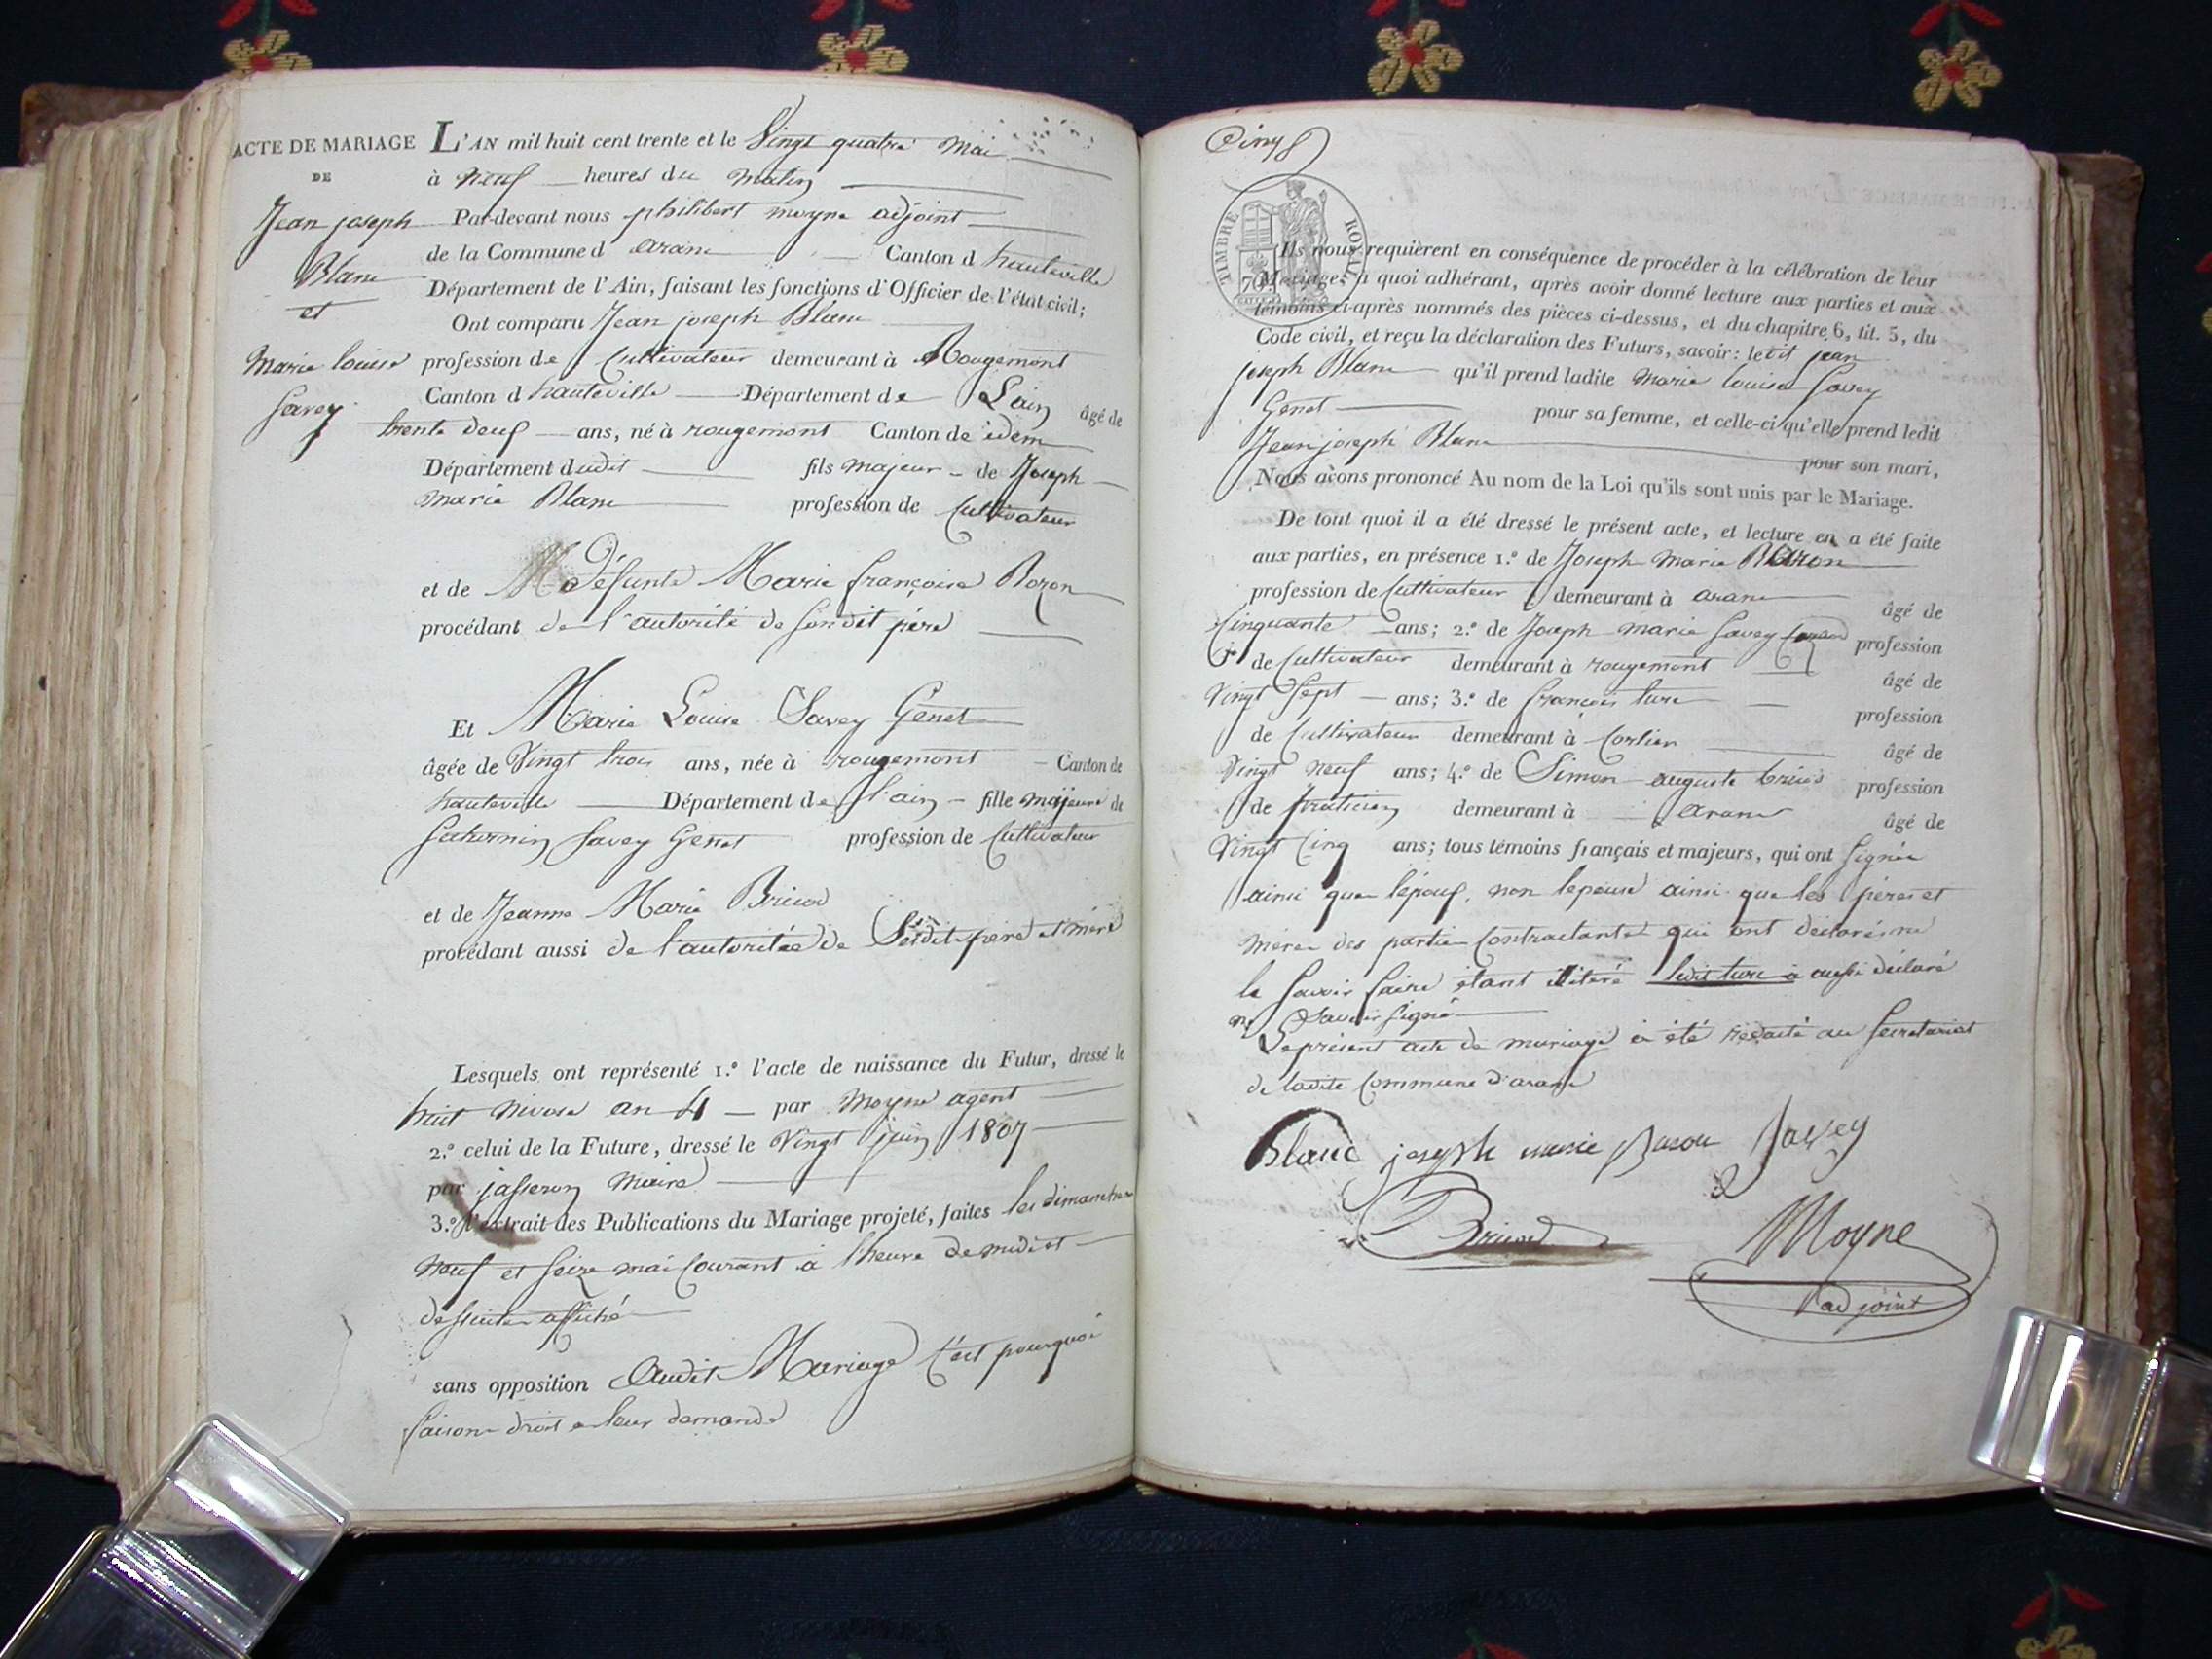 ACTE DE MARIAGE
DE
Jean joseph
Blanc
et
Marie louise
Savey
L'AN mil huit cent trente et le Vingt quatre mai
à neuf heures du matin
Par-devant nous philibert moyne adjoint
de la Commune d aranc Canton d hauteville
Département de l'Ain, faisant les fonctions d'Officier de l'état civil;
Ont comparu Jean joseph Blanc
profession de Cultivateur demeurant à Rougemont
Canton d hauteville Département de Lain âgé de
trente deuf ans, né à rougemont Canton de idem
Département dudit fils majeur de Joseph
marie Blanc profession de Cultivateur
et de Défunte Marie françoise Bozon
procédant de l'autorité de Sondit père
Et Marie Louise Savey Genet
âgée de Vingt trois ans, née à rougemont Canton de
hauteville Département de l'ain fille majeure de
Saturnin Savey Genet profession de Cultivateur
et de Jeanne Marie Bricod
procédant aussi de l'autoritée de Sesdit père et mère
Lesquels ont représenté 1.º l'acte de naissance du Futur, dressé le
huit nivose an 4 par Moyne agent
2.º celui de la Future, dressé le Vingt juin 1807
par jasseron maire
3.º l'extrait des Publications du Mariage projeté, faites les dimanches
neuf et seize mai Courant à l'heure de midi et
de suite affiché
sans opposition Audit Mariage C'est pourquoi
faisons droit a leur demande
TIMBRE ROYAL
70
Ils nous requièrent en conséquence de procéder à la célébration de leur
Mariage; à quoi adhérant, après avoir donné lecture aux parties et aux
témoins ci-après nommés des pièces ci-dessus, et du chapitre 6, tit. 5, du
Code civil, et reçu la déclaration des Futurs, savoir: ledit jean
joseph Blanc qu'il prend ladite marie louise Savey
Genet pour sa femme, et celle-ci qu'elle prend ledit
Jean joseph Blanc pour son mari,
Nous avons prononcé Au nom de la Loi qu'ils sont unis par le Mariage.
De tout quoi il a été dressé le présent acte, et lecture en a été faite
aux parties, en présence 1.º de Joseph marie
profession de Cultivateur demeurant à aranc âgé de
Cinquante ans; 2.º de Joseph marie Savey profession
de Cultivateur demeurant à rougemont âgé de
Vingt Sept ans; 3.º de francois ture profession
de Cultivateur demeurant à Corlier âgé de
Vingt neuf ans; 4.º de Simon auguste bricod profession
de praticien demeurant à aranc âgé de
Vingt Cinq ans; tous témoins français et majeurs, qui ont Signée
ainsi que l'épouf, non lepouse ainsi que les pères et
mères des parties Contractantes qui ont déclarés ne
le Savoir faire étant illitéré ledit ture a aussi déclaré
ne Savoir Signé
Leprésent acte de mariage à été rédaité au Secretariat
de ladite Commune d'aranc
Blanc joseph marie Savey
Bricod
Moyne
adjoint